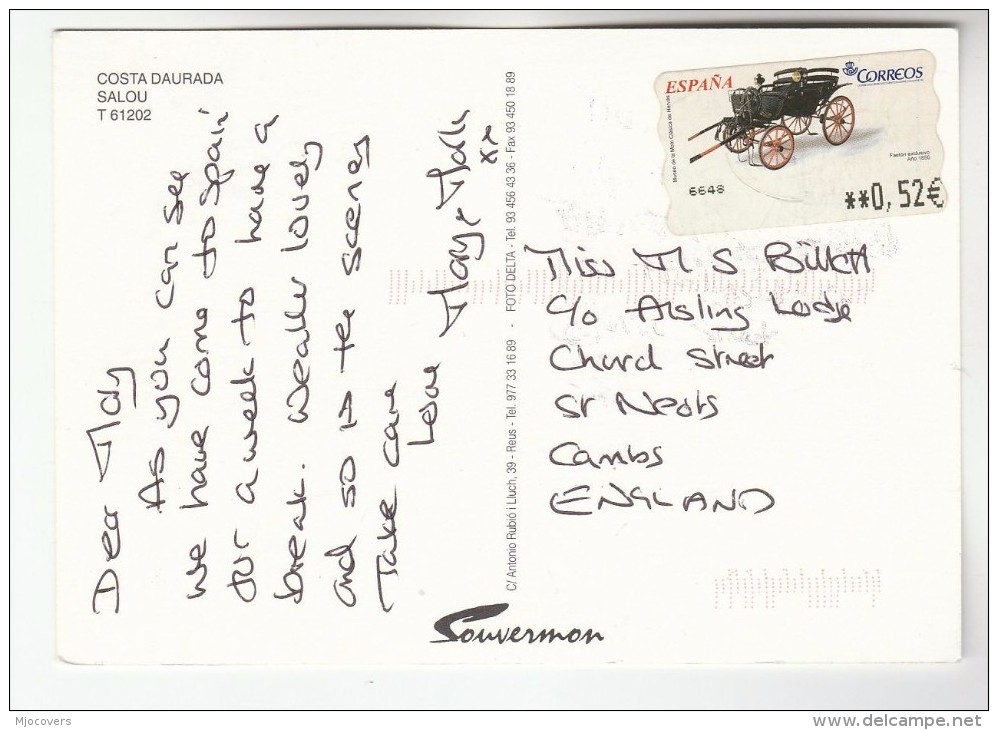 COSTA DAURADA
SALOU
T 61202
Dear Mary
As you can see
we have come to Spain
for a week to have a
break. Weather lovely
and so is the scenery
Take care
Love Mary &
xx
C/ Antonio Rubió i Lluch, 39 - Reus - Tel. 977 33 16 89 - FOTO DELTA - Tel. 93 456 43 36 - Fax 93 450 18 89
Souvermon
ESPAÑA
CORREOS
Museo de la Moto Clásica de Hervás
Faetón exclusivo
Año 1850
6648
**0,52€
Miss M S Billett
c/o Aisling Lodge
Church Street
St Neots
Cambs
ENGLAND
Mjocovers
delcampe.net